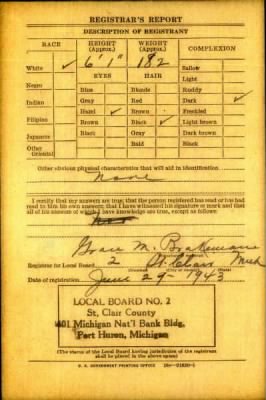 REGISTRAR'S REPORT
DESCRIPTION OF REGISTRANT
RACE HEIGHT (Approx.) WEIGHT (Approx.) COMPLEXION
White ✓ 6' 1" 182 Sallow
EYES HAIR Light
Negro Blue Blonde Ruddy
Indian Gray Red Dark ✓
Hazel ✓ Brown Freckled
Filipino Brown Black ✓ Light brown
Japanese Black Gray Dark brown
Other Oriental Bald Black
Other obvious physical characteristics that will aid in identification
None
I certify that my answers are true; that the person registered has read or has had
read to him his own answers; that I have witnessed his signature or mark and that
all of his answers of which I have knowledge are true, except as follows:
Grace M.
Registrar for Local Board 2 St. Clair Mich
Date of registration June 29 - 1943
LOCAL BOARD NO. 2
St. Clair County
401 Michigan Nat'l Bank Bldg.
Port Huron, Michigan
(The stamp of the Local Board having jurisdiction of the registrant
shall be placed in the above space.)
U. S. GOVERNMENT PRINTING OFFICE